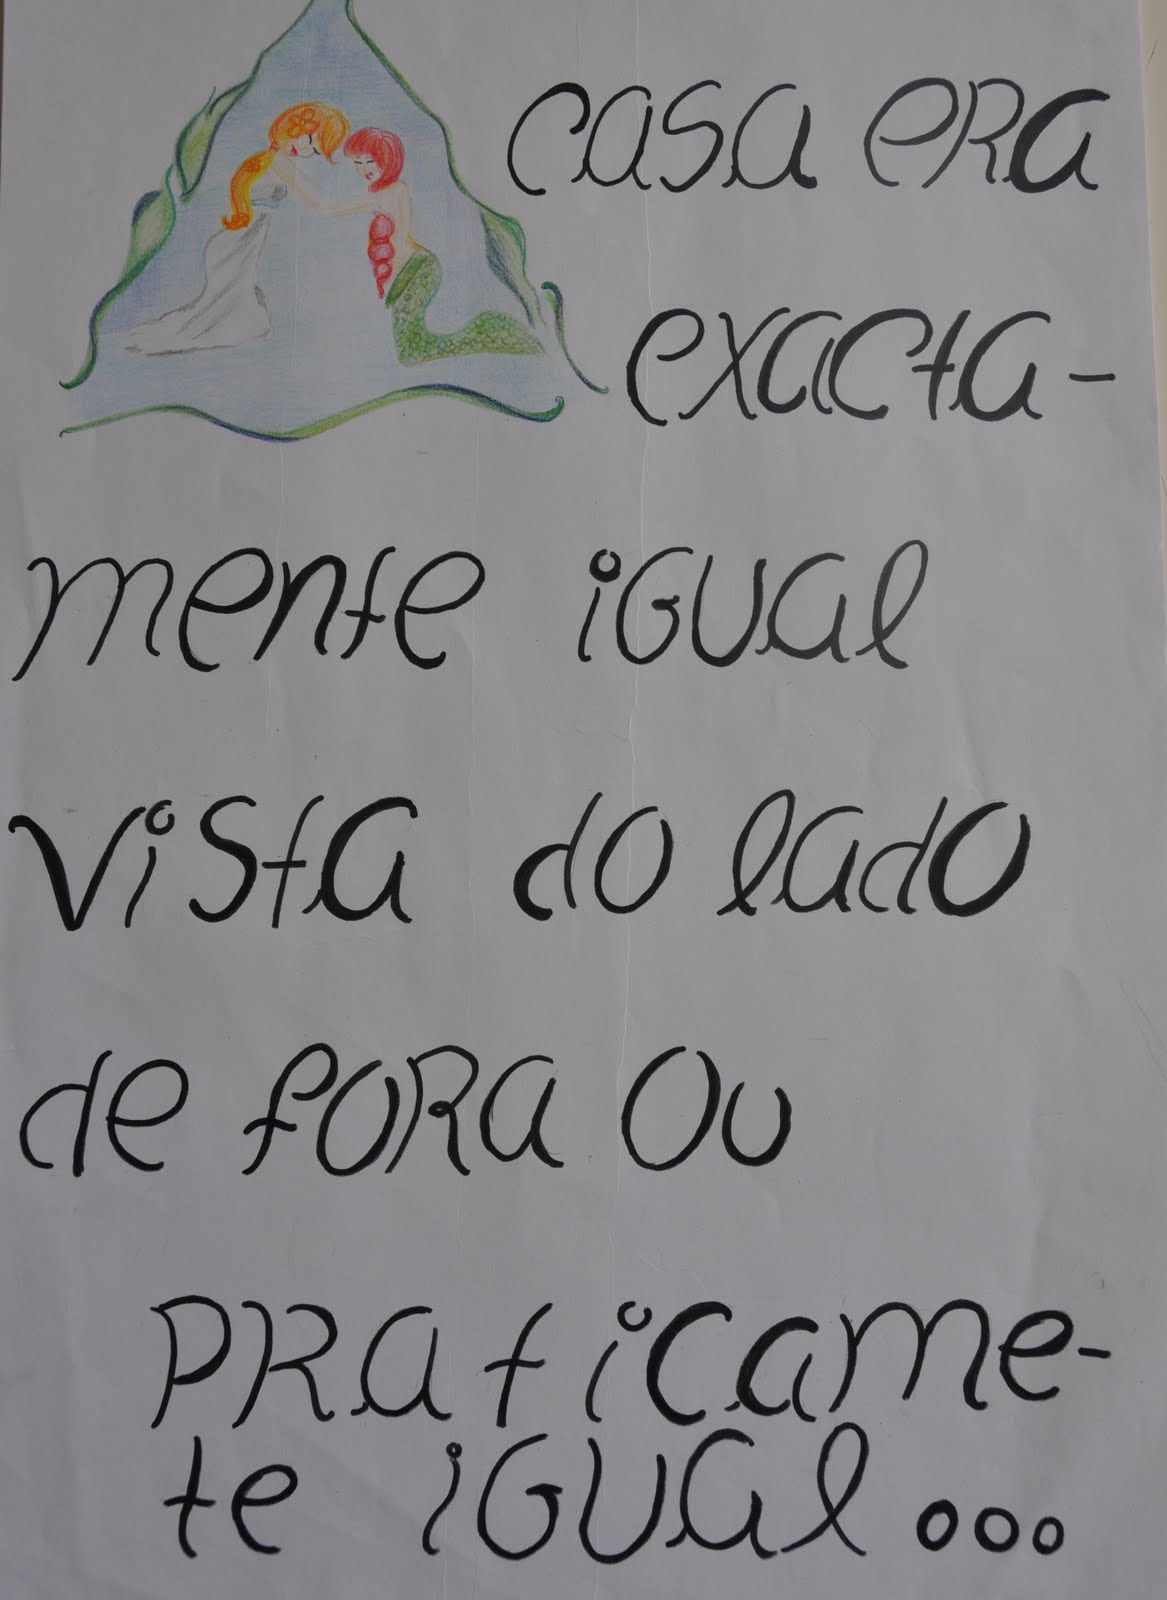 casa era
exacta-
mente igual
vista do lado
de fora ou
praticame-
te igual...